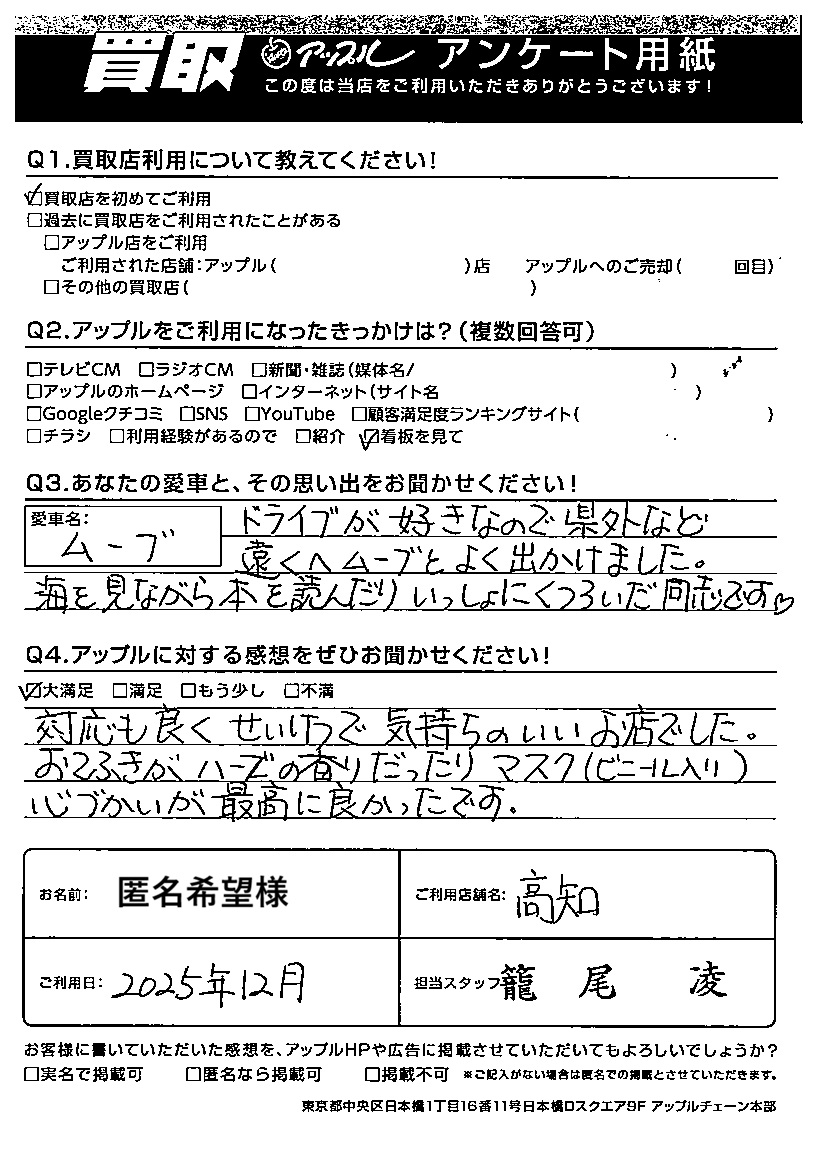 買取 アップル アンケート用紙
この度は当店をご利用いただきありがとうございます!
Q1.買取店利用について教えてください!
☑買取店を初めてご利用
□過去に買取店をご利用されたことがある
□アップル店をご利用
ご利用された店舗:アップル( )店 アップルへのご売却( 回目)
□その他の買取店( )
Q2.アップルをご利用になったきっかけは?(複数回答可)
□テレビCM □ラジオCM □新聞・雑誌(媒体名/ )
□アップルのホームページ □インターネット(サイト名 )
□Googleクチコミ □SNS □YouTube □顧客満足度ランキングサイト( )
□チラシ □利用経験があるので □紹介 ☑看板を見て
Q3.あなたの愛車と、その思い出をお聞かせください!
愛車名: ムーブ
ドライブが好きなので県外など
遠くへムーブとよく出かけました。
海を見ながら本を読んだりいっしょにくつろいだ同志です♡
Q4.アップルに対する感想をぜひお聞かせください!
☑大満足 □満足 □もう少し □不満
対応も良くせいけつで気持ちのいいお店でした。
おてふきがハーブの香りだったりマスク(ビニール入り)
心づかいが最高に良かったです。
お名前: 匿名希望様
ご利用店舗名: 高知
ご利用日: 2025年12月
担当スタッフ 籠尾 凌
お客様に書いていただいた感想を、アップルHPや広告に掲載させていただいてもよろしいでしょうか?
□実名で掲載可 □匿名なら掲載可 □掲載不可 ※ご記入がない場合は匿名での掲載とさせていただきます。
東京都中央区日本橋1丁目16番11号日本橋ロスクエア9F アップルチェーン本部